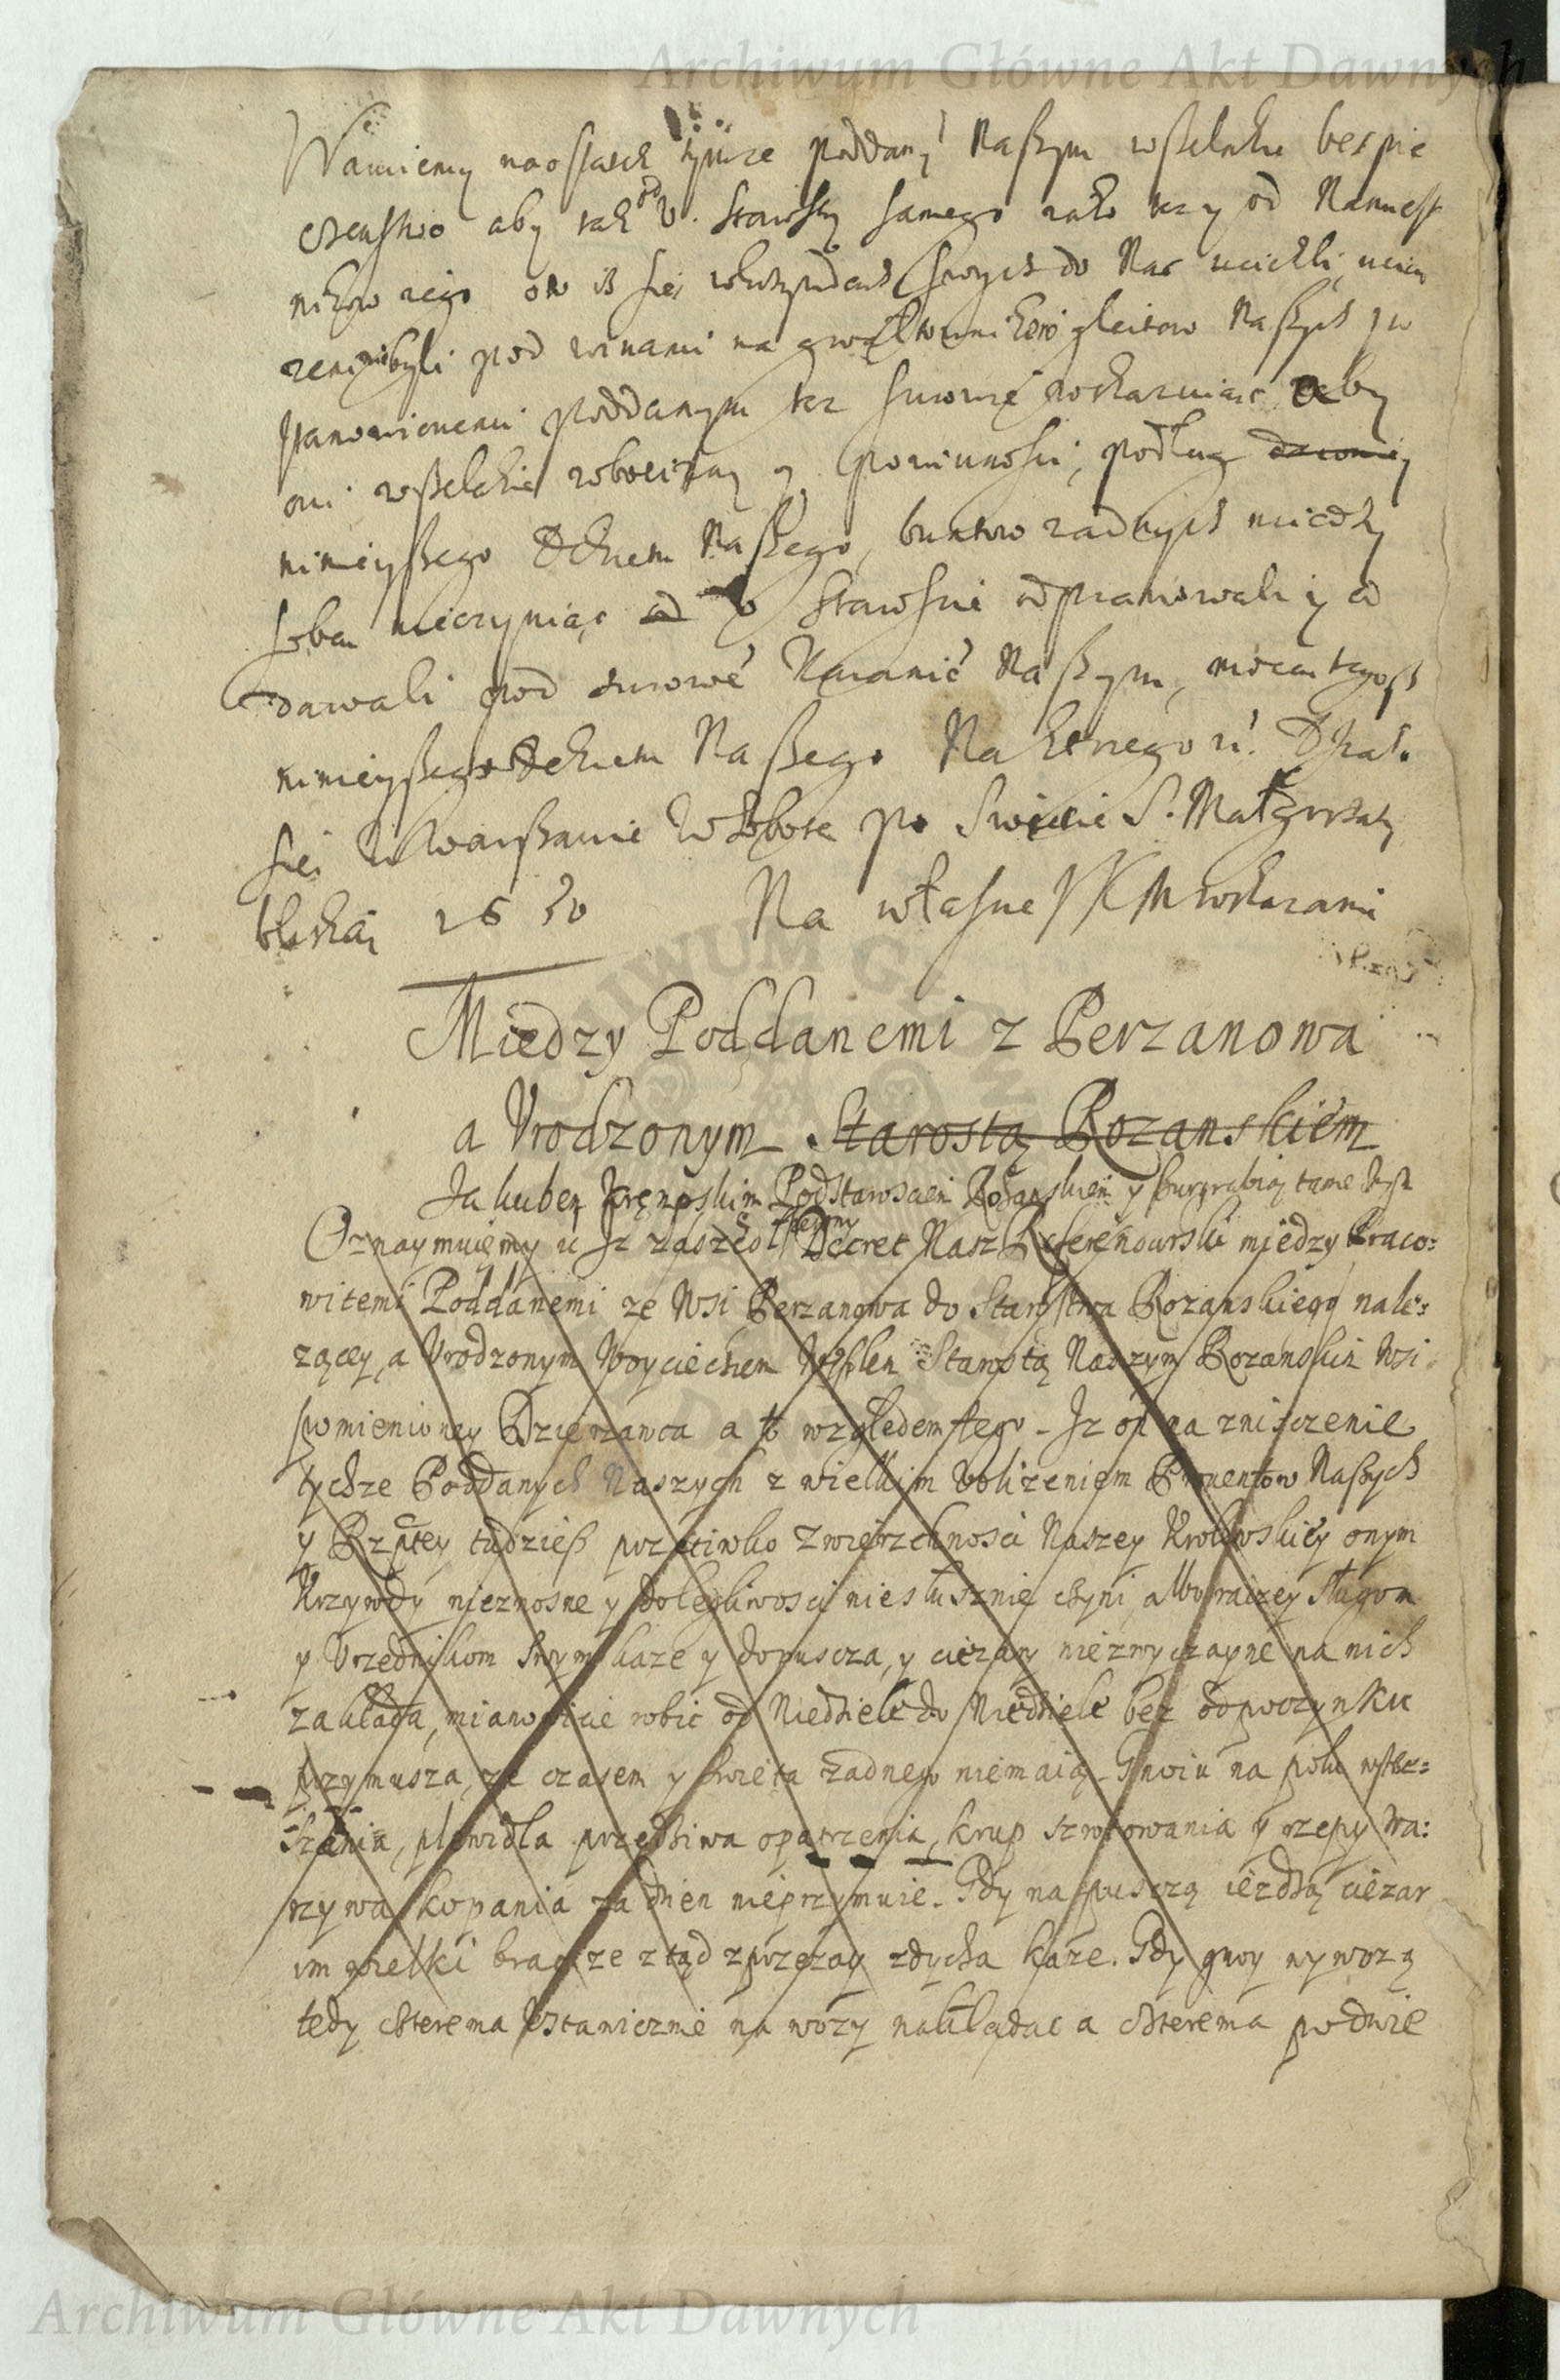 Archiwum Główne Akt Dawnych
Waruiemy naostatek tymze poddanỹ Naszym wszelakie bespie
czenstwo aby tak od U. Starosty samego iako tez y od Namiest
nikow iego o to isz się w krzywdach swych do Nas uciekli,
nie byli pod winami na gwałtownikow gleitow Naszych
stanowionemi poddanym tez surowie roskazuiąc aby
oni wszelakie robocizny y powinnosci, podług
ninieyszego Dekretu Naszego, buntow zadnych miedzy
sobą nieczyniąc Staroscie odprawowali y od
dawali pod surowe Karanie Naszym, mocą tegosz
ninieyszego Dekretu Naszego Na etc. Dział
się w Warszawie w Sobotę po Swięcie S. Małgorzaty
bliskiey 1630 Na własne JKM wskazanie
Miedzy Poddanemi z Perzanowa
a Vrodzonym Starostą Rozanskiem
Jakubem Krępskim Podstaroscim Rozanskiem y Burgrabią tamecznym
Oznaymuiemy iz Jz zaszedł Decret Nasz Referendarski miedzy Praco:
witemi Poddanemi ze Wsi Perzanowa do Starostwa Rozanskiego nale:
zącey, a Vrodzonym Woyciechem Starostą Naszym Rozanskim Wsi
pomienioney Dzierzawca a to względem tego - Jz on na zniszczenie
tychze Poddanych Naszych z wielkim vblizeniem Prouentow Naszych
y Rzptey tudziesz przeciwko Zwierzchnosci Naszey Krolewskiey onym
Krzywdy nieznosne y dolegliwosci niesłusznie czyni, albo raczey sługom
y Vrzednikom swym kaze y dopuscza, y cięzary niezwyczayne na nich
zakłada, mianowicie robic od Niedziele do Niedziele bez odpoczynku
przymusza, ze czasem y swięta zadnego niemaią. Gnoiu na polu
plewidla przedziwa opatrzenia, krup y rzepy wa:
rzywa kopania za dzien nieprzymuie. Gdy na puszczą iezdzą cięzar
im wielki brac ze ztąd zprzęzay zdycha kaze. Gdy gnoy wywozą
tedy czterema vstawicznie na wozy nakładac a czterema po dwie
Archiwum Główne Akt Dawnych